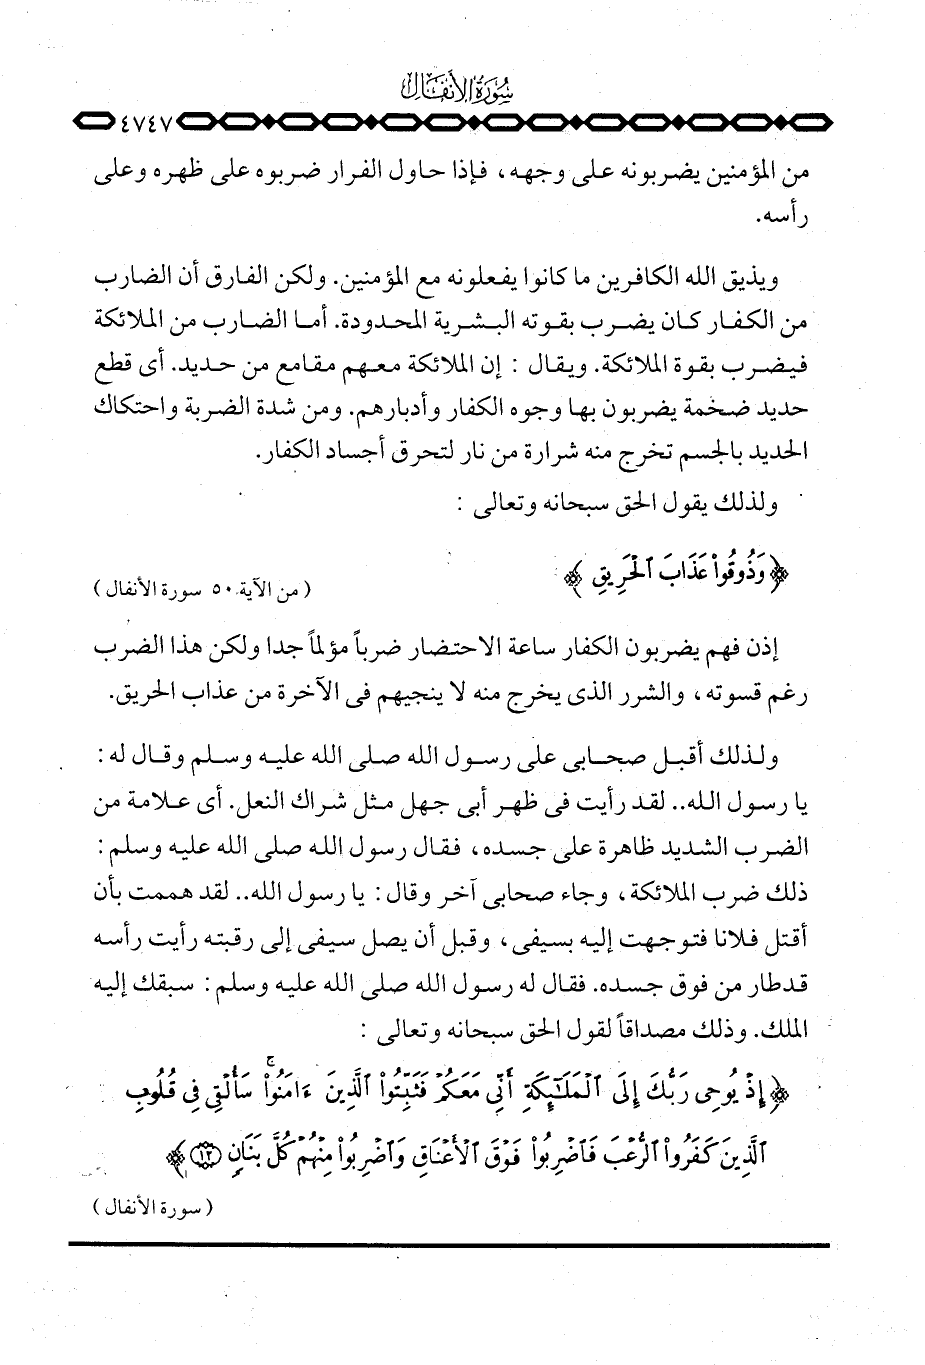 سُورَةُ الأَنفَال
٤٧٤٧
من المؤمنين يضربونه على وجهه، فإذا حاول الفرار ضربوه على ظهره وعلى
رأسه.
ويذيق الله الكافرين ما كانوا يفعلونه مع المؤمنين. ولكن الفارق أن الضارب
من الكفار كان يضرب بقوته البشرية المحدودة. أما الضارب من الملائكة
فيضرب بقوة الملائكة. ويقال : إن الملائكة معهم مقامع من حديد. أى قطع
حديد ضخمة يضربون بها وجوه الكفار وأدبارهم. ومن شدة الضربة واحتكاك
الحديد بالجسم تخرج منه شرارة من نار لتحرق أجساد الكفار.
ولذلك يقول الحق سبحانه وتعالى :
﴿ وَذُوقُوا۟ عَذَابَ ٱلْحَرِيقِ ﴾
( من الآية ٥٠ سورة الأنفال )
إذن فهم يضربون الكفار ساعة الاحتضار ضرباً مؤلماً جدا ولكن هذا الضرب
رغم قسوته، والشرر الذى يخرج منه لا ينجيهم فى الآخرة من عذاب الحريق.
ولذلك أقبل صحابى على رسول الله صلى الله عليه وسلم وقال له :
يا رسول الله.. لقد رأيت فى ظهر أبى جهل مثل شراك النعل. أى علامة من
الضرب الشديد ظاهرة على جسده، فقال رسول الله صلى الله عليه وسلم :
ذلك ضرب الملائكة، وجاء صحابى آخر وقال : يا رسول الله.. لقد هممت بأن
أقتل فلانا فتوجهت إليه بسيفى، وقبل أن يصل سيفى إلى رقبته رأيت رأسه
قد طار من فوق جسده. فقال له رسول الله صلى الله عليه وسلم : سبقك إليه
الملك. وذلك مصداقاً لقول الحق سبحانه وتعالى :
﴿ إِذْ يُوحِى رَبُّكَ إِلَى ٱلْمَلَـٰٓئِكَةِ أَنِّى مَعَكُمْ فَثَبِّتُوا۟ ٱلَّذِينَ ءَامَنُوا۟ ۚ سَأُلْقِى فِى قُلُوبِ
ٱلَّذِينَ كَفَرُوا۟ ٱلرُّعْبَ فَٱضْرِبُوا۟ فَوْقَ ٱلْأَعْنَاقِ وَٱضْرِبُوا۟ مِنْهُمْ كُلَّ بَنَانٍ ١٢ ﴾
( سورة الأنفال )